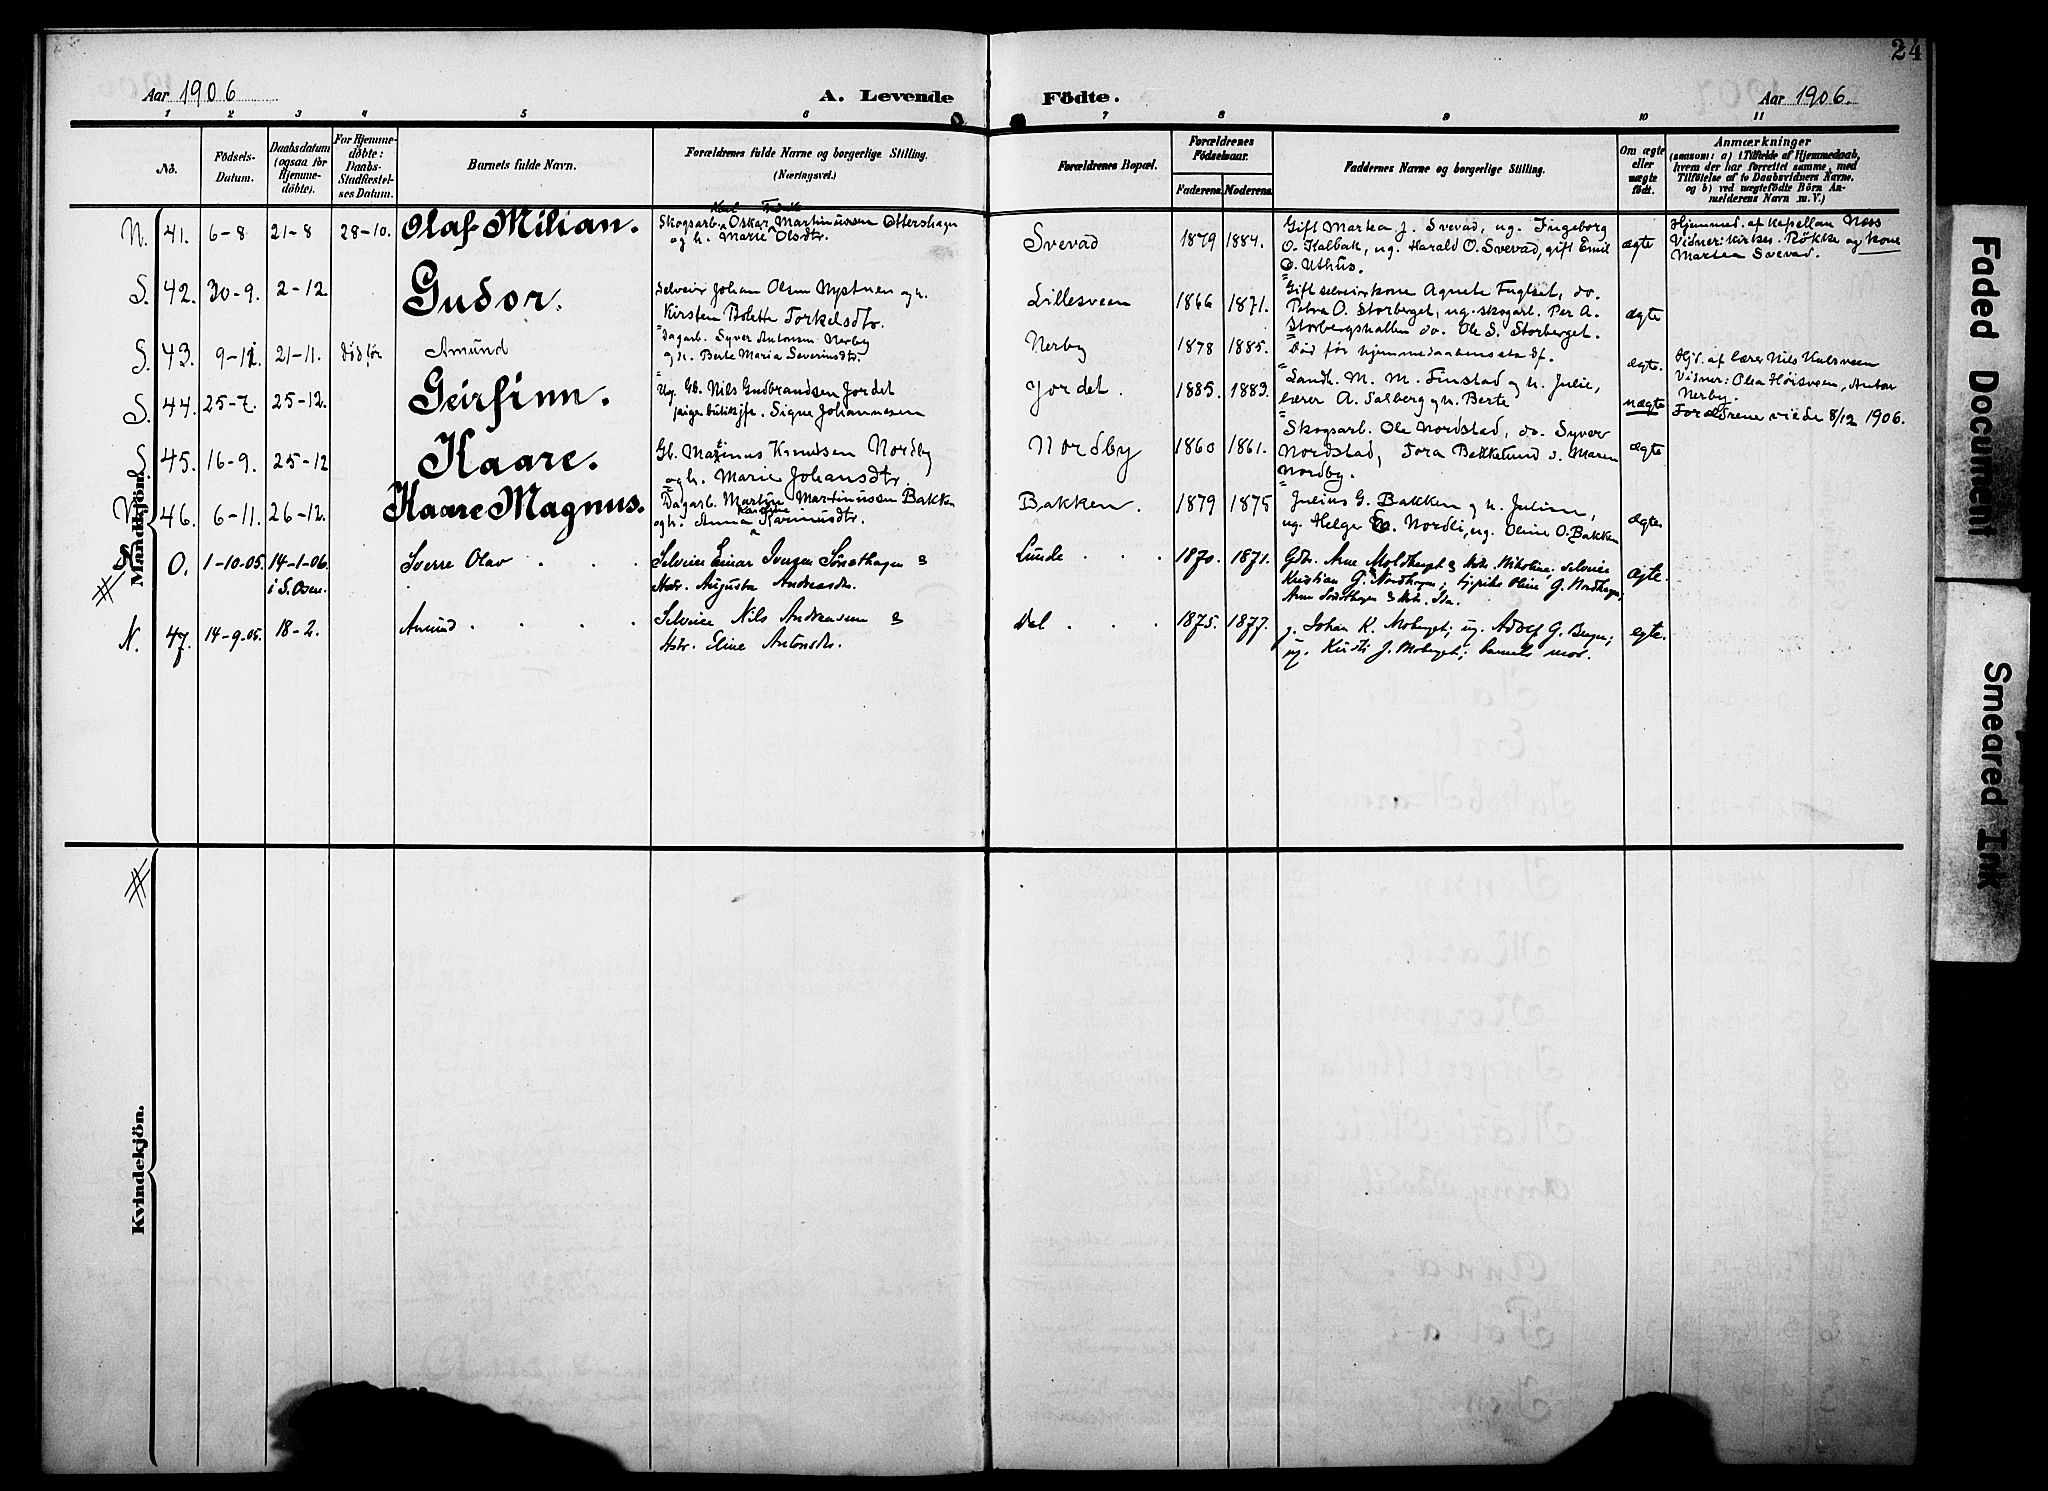 24
Aar 1906
A. Levende Födte.
Aar 1906.
1 2 3 4 5 6 7 8 9 10 11
No.
Födsels-Datum.
Daabsdatum (ogsaa for Hjemmedöbte).
For Hjemmedöbte: Daabs-Stadfæstelses Datum.
Barnets fulde Navn.
Forældrenes fulde Navne og borgerlige Stilling. (Næringsvei.)
Forældrenes Bopæl.
Forældrenes Födselsaar.
Faderens. Moderens.
Faddernes Navne og borgerlige Stilling.
Om ægte eller uægte födt.
Anmærkninger
(saasom: a) i Tilfælde af Hjemmedaab, hvem der har forrettet samme, med Tilföielse af to Daabsvidners Navne, og b) ved uægtefödte Börn Anmelderens Navn m. V.)
Mandkjön.
N. 41. 6-8 21-8 28-10. Olaf Milian.
Skogsarb. Oskar Martinussen Ottershagen
og h. Marie Olsdtr.
Svevad 1879 1884.
Gift Martea J. Svevad, ug. Ingeborg
O. Kalbak, ug. Harald O. Svevad, gift Emil
O. Uthus.
ægte
Hjemmed. af Kapellan Næss
Vidner: Kirkes. Røkke og kone
Martea Svevad.
S. 42. 30-9. 2-12. Gudor.
Selveier Johan Olsen Nystuen og h.
Kirsten Bolette Torkelsdtr.
Lillesveen 1866 1871.
Gift selveierkone Agnete Fuglset, do.
Petra O. Storberget, ug. skogarb. Per A.
Storbergshallen do. Ole S. Storberget.
ægte
S. 43. 9-11. 21-11. død før Amund
Dagarb. Syver Antonsen Nerby
og h. Berte Maria Severinsdtr.
Nerby 1878 1885.
Død før hjemmedaabens stadf.
ægte.
Hjd. af Lærer Nils Kulsveen
Vidner: Olea Høisveen, Anton
Nerby.
S. 44. 25-7. 25-12. Geirfinn.
Ug. Gb. Nils Gudbrandsen Jordet
pige butikjfr. Signe Johannesen
Jordet. 1885. 1883.
Landh. M. M. Finstad og h. Julie,
Lærer A. Solberg og h. Berte
uægte
Forældrene viede 8/12 1906.
S. 45. 16-9. 25-12 Kaare.
Gb. Martinus Knudsen Nordby
og h. Marie Johansdtr.
Nordby 1860 1861.
Skogsarb. Ole Nordstad, do. Syver
Nordstad, Tora Bekkelund o. Maren
Nordby.
ægte
V. 46. 6-11. 26-12. Kaare Magnus.
Dagarb. Martin Martinussen Bakken
og h. Anna Karine Karinusdtr.
Bakken. 1879 1875
Julius G. Bakken og h. Juline,
ug. Helge Nordli, ug. Oline O. Bakken
ægte
O. 1-10-05. 14-1-06. i S. Osen. Sverre Olav
Selveier Einar Iversen Sørsthagen &
Hstr. Augusta Andreasdtr.
Lunde 1870. 1871.
Gbr. Arne Moldberget & Hstr. Nikoline; selveier
Kristian G. Nordhagen; tjpike Oline G. Nordhagen,
ægte.
N. 47. 14-9-05. 18-2. Amund
Selveier Nils Andreassen &
Hstr. Eline Antonsdtr.
1875. 1877.
g. Johan K. Moberget; ug. Adolf G. Berger;
ug. Kirsti J. Moberget; barnets mor.
egte.
Kvindekjön.
Faded Document
Smeared Ink